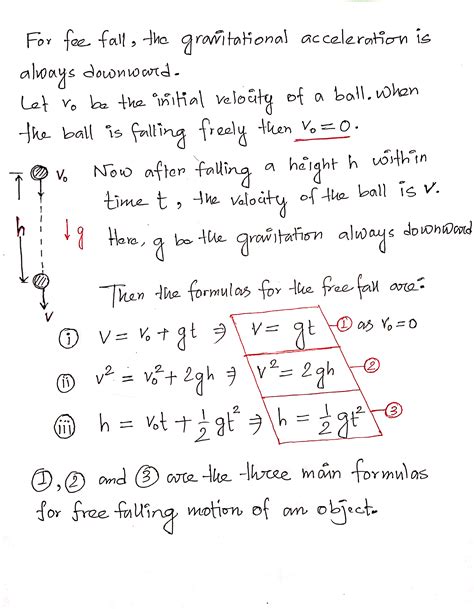 For fee fall, the gravitational acceleration is
always downward.
Let v₀ be the initial velocity of a ball. When
the ball is falling freely then v₀ = 0.
v₀
Now after falling a height h within
time t, the velocity of the ball is v.
h
↓g
Here, g be the gravitation always downward
v
Then the formulas for the free fall are:
(i) v = v₀ + gt ⇒ v = gt ① as v₀ = 0
(ii) v² = v₀² + 2gh ⇒ v² = 2gh ②
(iii) h = v₀t + 1/2 gt² ⇒ h = 1/2 gt² ③
①, ② and ③ are the three main formulas
for free falling motion of an object.